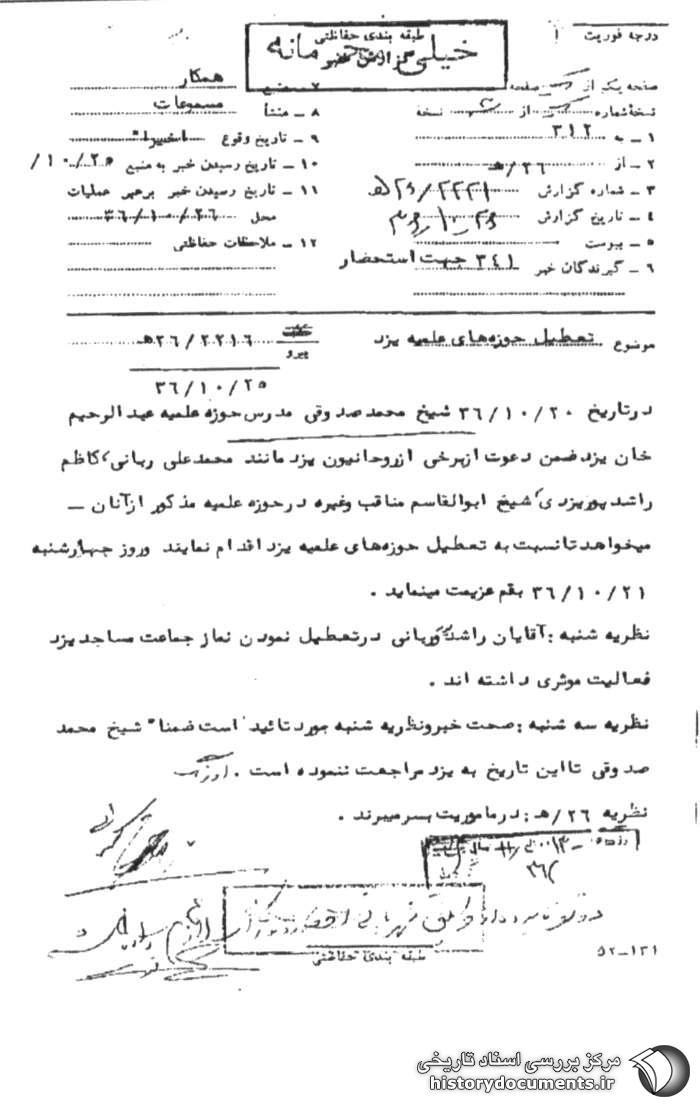 درجه فوریت
طبقه بندی حفاظتی
خیلی محرمانه
گزارش خبر
صفحه یک از یک صفحه
نسخهٔ شماره از نسخه
۱ – به ۳۱۲
۲ – از ۲۶/هـ
۳ – شماره گزارش ۲۶/۲۲۲۱هـ
۴ – تاریخ گزارش ۲۶–۱۰–۳۶
۵ – پیوست
۶ – گیرندگان خبر ۳۴۱ جهت استحضار
۷ – منبع همکار
۸ – منشأ مسموعات
۹ – تاریخ وقوع اخیرا"
۱۰ – تاریخ رسیدن خبر به منبع ۱۰/۲۵/
۱۱ – تاریخ رسیدن خبر برهبر عملیات
محل ۳۶/۱۰/۲۶
۱۲ – ملاحظات حفاظتی
موضوع تعطیل حوزه‌های علمیه یزد
پیرو ۲۶/۲۲۱۶هـ
۳۶/۱۰/۲۵
درتاریخ ۳۶/۱۰/۲۰ شیخ محمد صدوقی مدرس حوزه علمیه عبدالرحیم
خان یزد ضمن دعوت ازبرخی ازروحانیون یزد مانند محمدعلی ربانی، کاظم
راشدپوریزدی، شیخ ابوالقاسم مناقب وغیره درحوزه علمیه مذکور ازآنان –
میخواهد تا نسبت به تعطیل حوزه‌های علمیه یزد اقدام نمایند وروز چهارشنبه
۳۶/۱۰/۲۱ بقم عزیمت مینماید .
نظریه شنبه : آقایان راشد وربانی درتعطیل نمودن نماز جماعت مساجد یزد
فعالیت موثری داشته اند .
نظریه سه شنبه : صحت خبرونظریه شنبه مورد تائید است ضمنا" شیخ محمد
صدوقی تا این تاریخ به یزد مراجعت ننموده است .
نظریه ۲۶/هـ : درماموریت بسرمیبرند .
طبقه بندی حفاظتی
۵۲–۱۳۱
مرکز بررسی اسناد تاریخی
historydocuments.ir